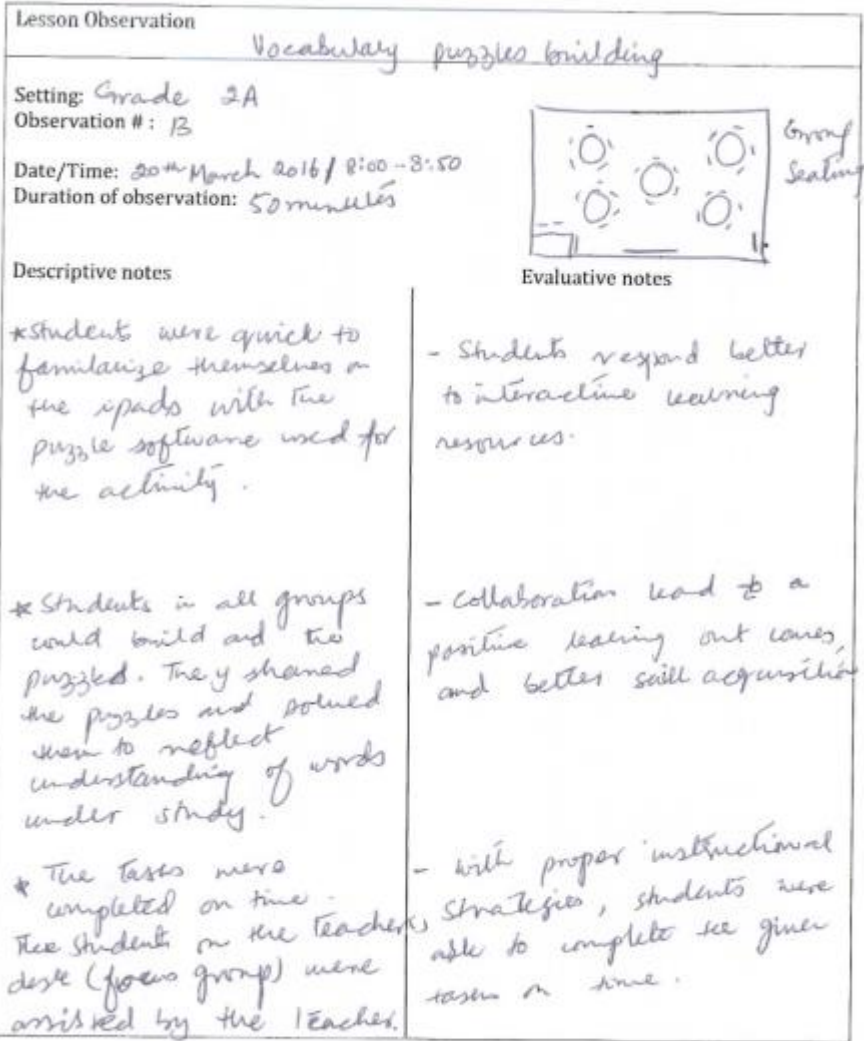 Lesson Observation
Vocabulary puzzles building
Setting: Grade 2A
Observation # : 13
Date/Time: 20th March 2016 / 8:00-8:50
Duration of observation: 50 minutes
Group
Seating
Descriptive notes
*Students were quick to
familarize themselves on
the ipads with the
puzzle software used for
the activity.
* Students in all groups
could build and the
puzzled. They shared
the puzzles and solved
them to reflect
understanding of words
under study.
* The tasks were
completed on time.
The students on the teachers
desk (focus group) were
assisted by the teacher.
Evaluative notes
- Students respond better
to interactive learning
resources.
- Collaboration lead to a
positive learning out comes,
and better skill acquisition
- With proper instructional
strategies, students were
able to complete the given
tasks on time.